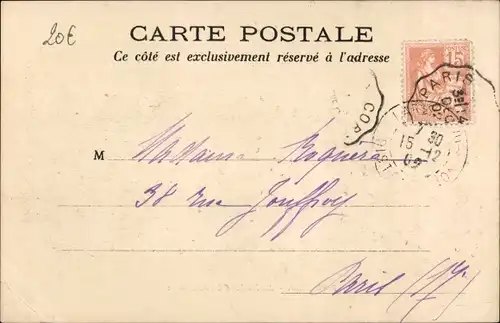 20€
CARTE POSTALE
Ce côté est exclusivement réservé à l'adresse
15
PARIS
COR
15
30
12
M Madame Roquera
38 rue Jouffroy
Paris